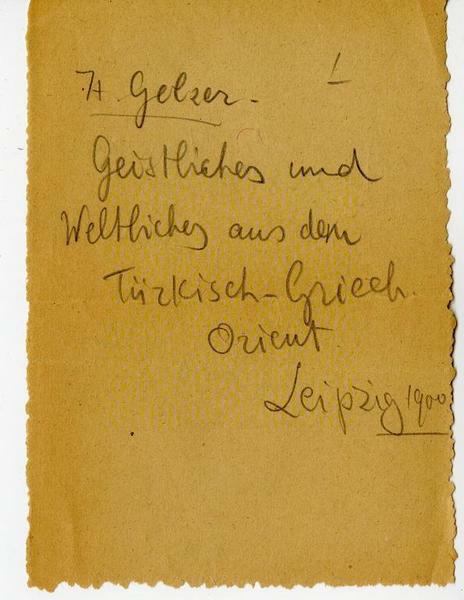 H. Gelzer.
Geistliches und
Weltliches aus dem
Türkisch-Griech.
Orient
Leipzig 1900